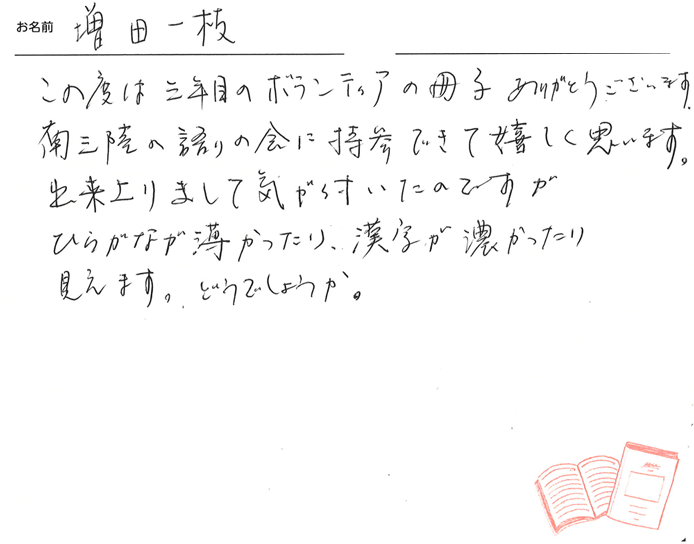 お名前 増田一枝
この度は三年目のボランティアの冊子ありがとうございます。
南三陸の語りの会に持参できて嬉しく思います。
出来上りまして気が付いたのですが
ひらがなが薄かったり、漢字が濃かったり
見えます。どうでしょうか。